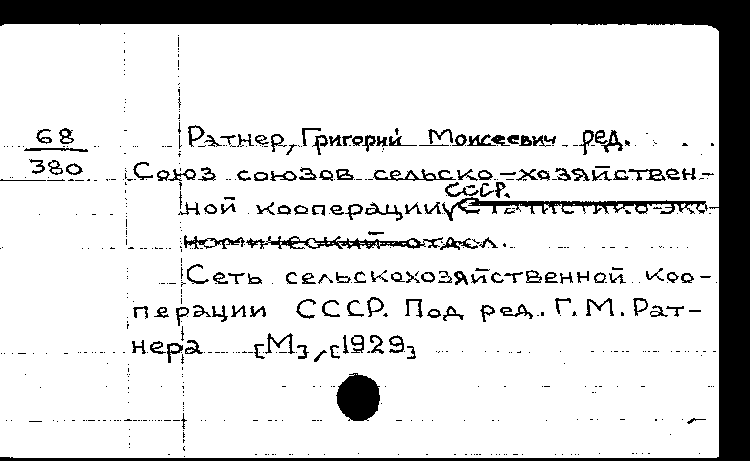 68
380
Ратнер, Григорий Моисеевич ред.
Союз союзов сельско-хозяйствен-
СССР.
ной кооперации Статистико-эко-
номический отдел.
Сеть сельскохозяйственной коо-
перации СССР. Под ред. Г. М. Рат-
нера [М], [1929]